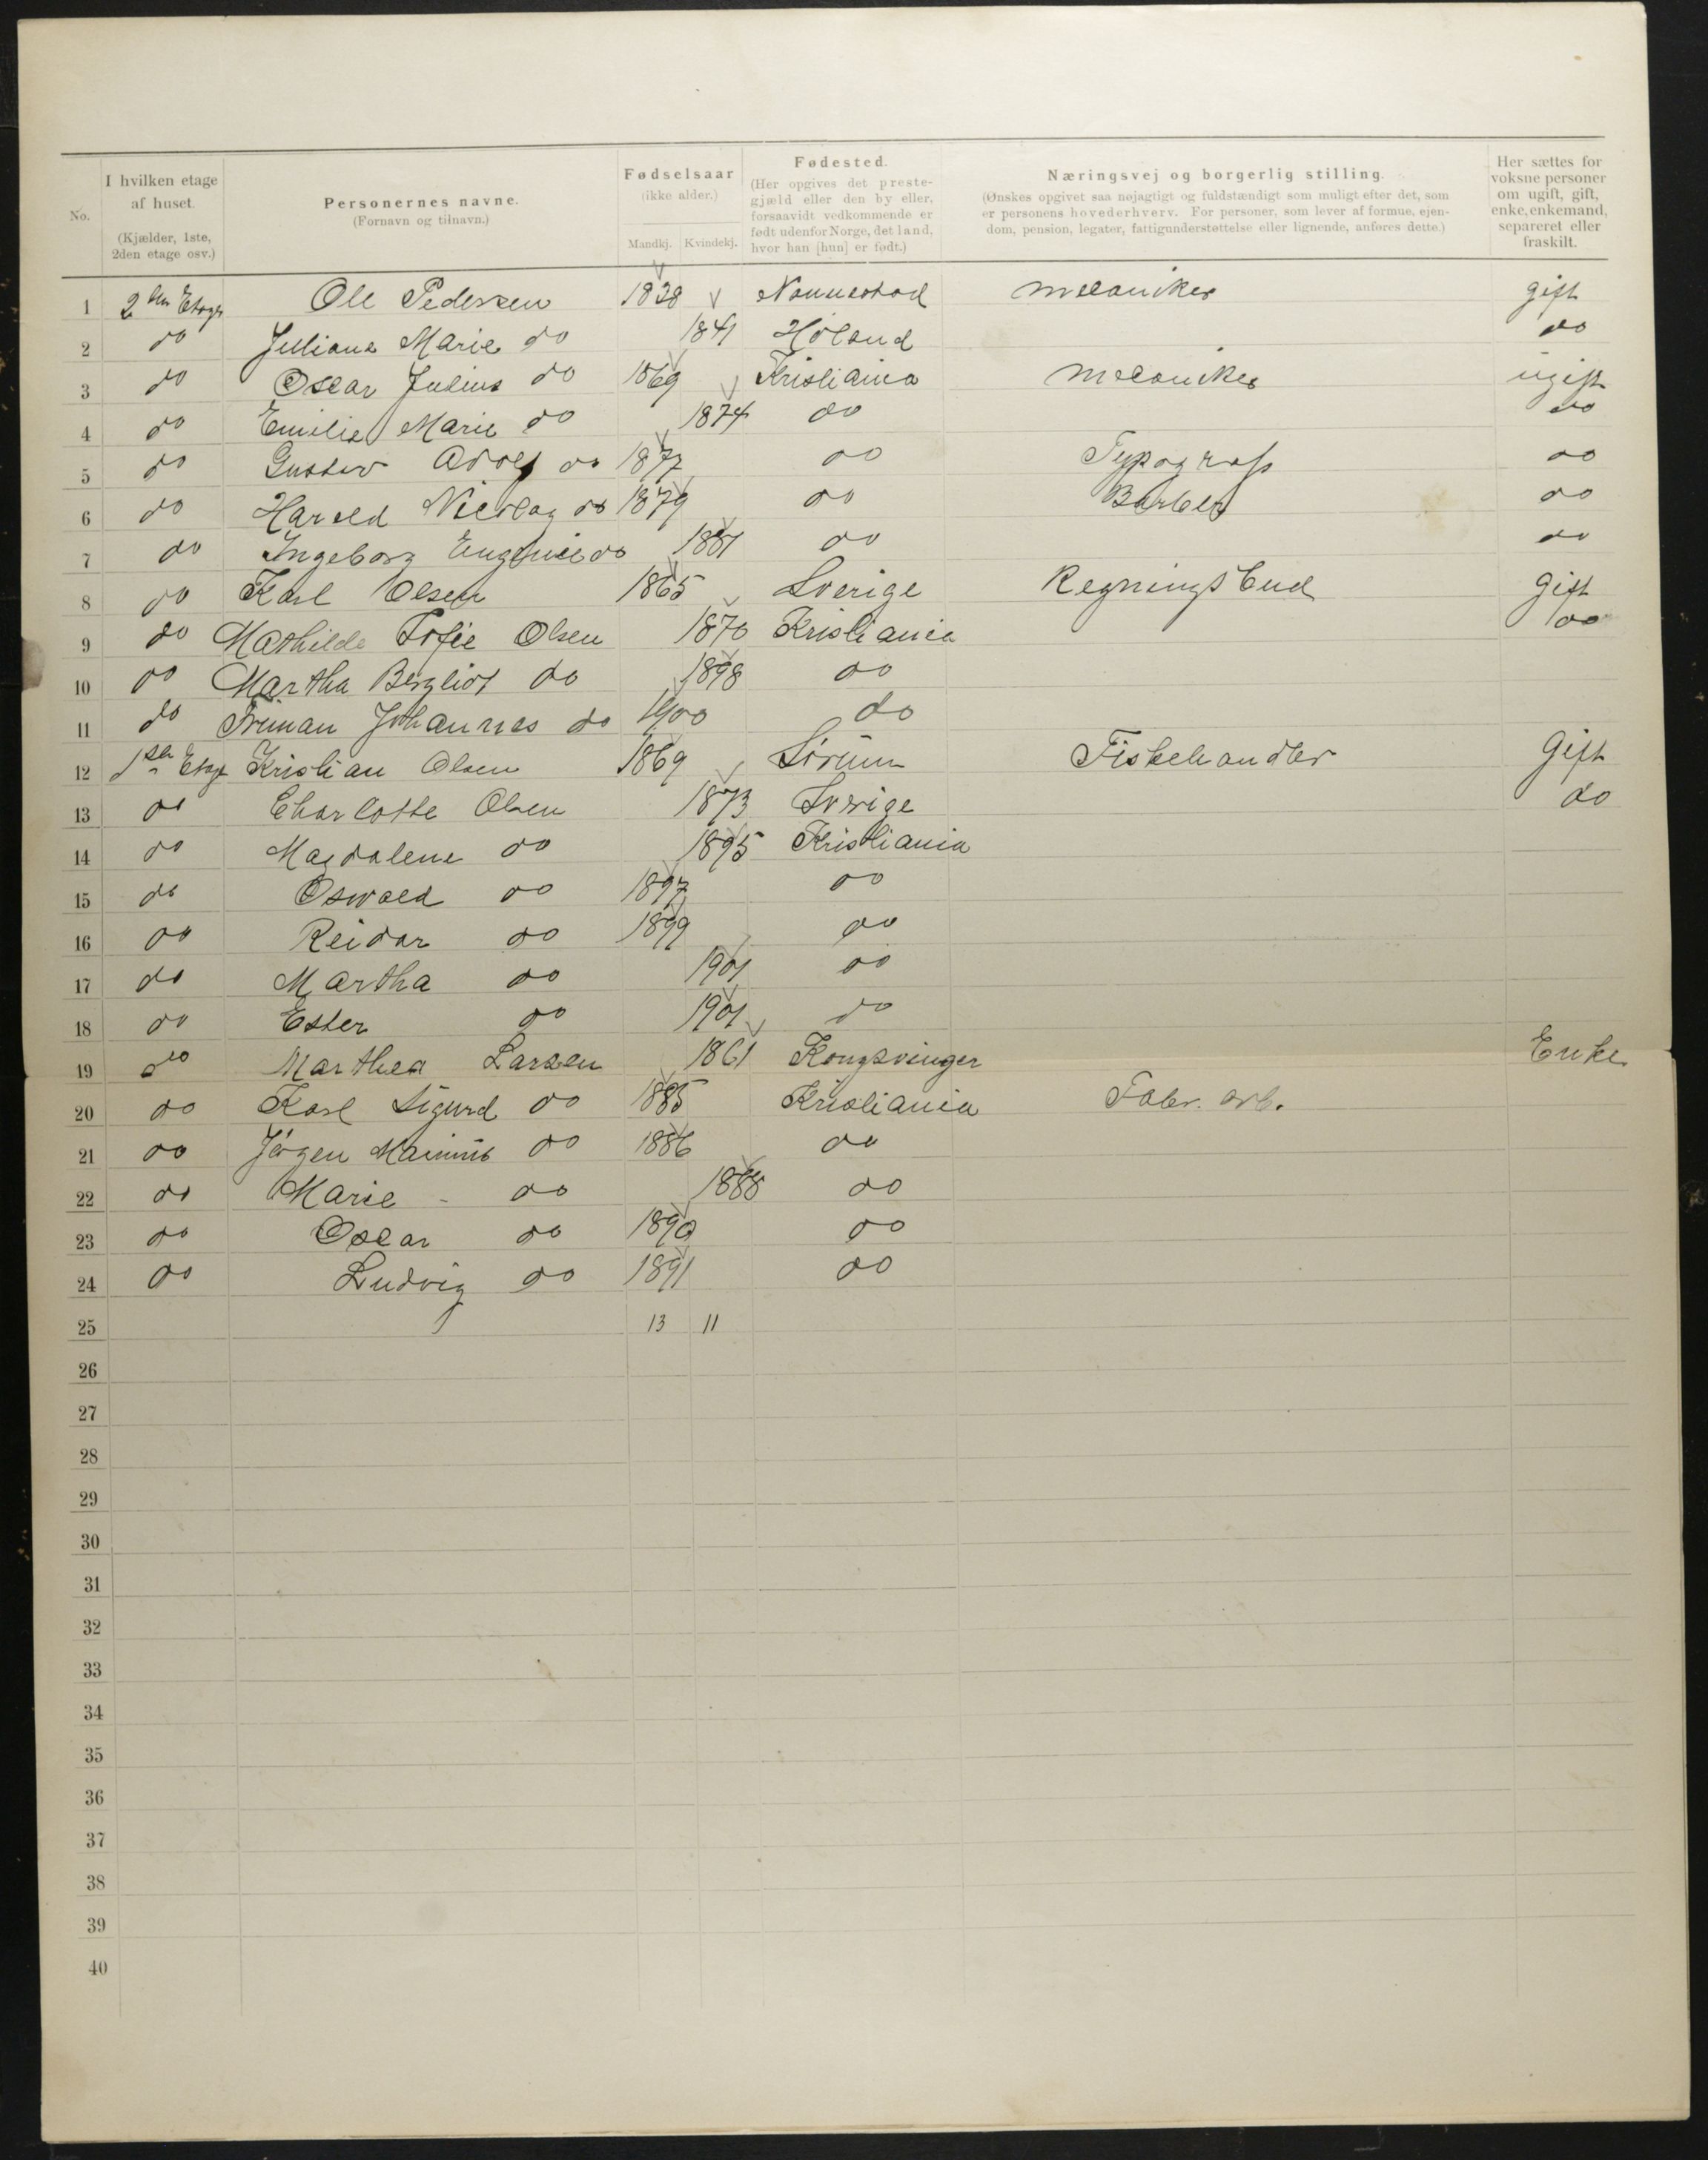 No.
I hvilken etage af huset.
(Kjælder, 1ste, 2den etage osv.)
Personernes navne.
(Fornavn og tilnavn.)
Fødselsaar
(ikke alder.)
Mandkj. Kvindekj.
Fødested.
(Her opgives det preste-
gjæld eller den by eller,
forsaavidt vedkommende er
født udenfor Norge, det land,
hvor han [hun] er født.)
Næringsvej og borgerlig stilling.
(Ønskes opgivet saa nøjagtigt og fuldstændigt som muligt efter det, som
er personens hovederhverv. For personer, som lever af formue, ejen-
dom, pension, legater, fattigunderstøttelse eller lignende, anføres dette.)
Her sættes for
voksne personer
om ugift, gift,
enke, enkemand,
separeret eller
fraskilt.
1 2den Etage Ole Pedersen 1838 Nannestad mecaniker gift
2 do Juliana Marie do 1841 Höland do
3 do Oscar Julius do 1869 Kristiania mecaniker ugift
4 do Emilie Marie do 1874 do do
5 do Gustav Adolf do 1877 do Typograf do
6 do Harald Nicolay do 1879 do Barber do
7 do Ingeborg Eugenie do 1881 do do
8 do Karl Olsen 1865 Sverige Regningsbud gift
9 do Mathilde Sofie Olsen 1870 Kristiania do
10 do Martha Bergliot do 1898 do
11 do Johannes do 1900 do
12 1ste Etage Kristian Olsen 1869 Sörum Fiskehandler Gift
13 do Charlotte Olsen 1873 Sverige do
14 do Magdalene do 1895 Kristiania
15 do Oswald do 1897 do
16 do Reidar do 1899 do
17 do Martha do 1901 do
18 do Ester do 1901 do
19 do Marthea Larsen 1861 Kongsvinger Enke
20 do Karl Sigurd do 1885 Kristiania Fabr. arb.
21 do Jörgen do 1886 do
22 do Marie - do 1888 do
23 do Oscar do 1890 do
24 do Ludvig do 1891 do
25 13 11
26
27
28
29
30
31
32
33
34
35
36
37
38
39
40